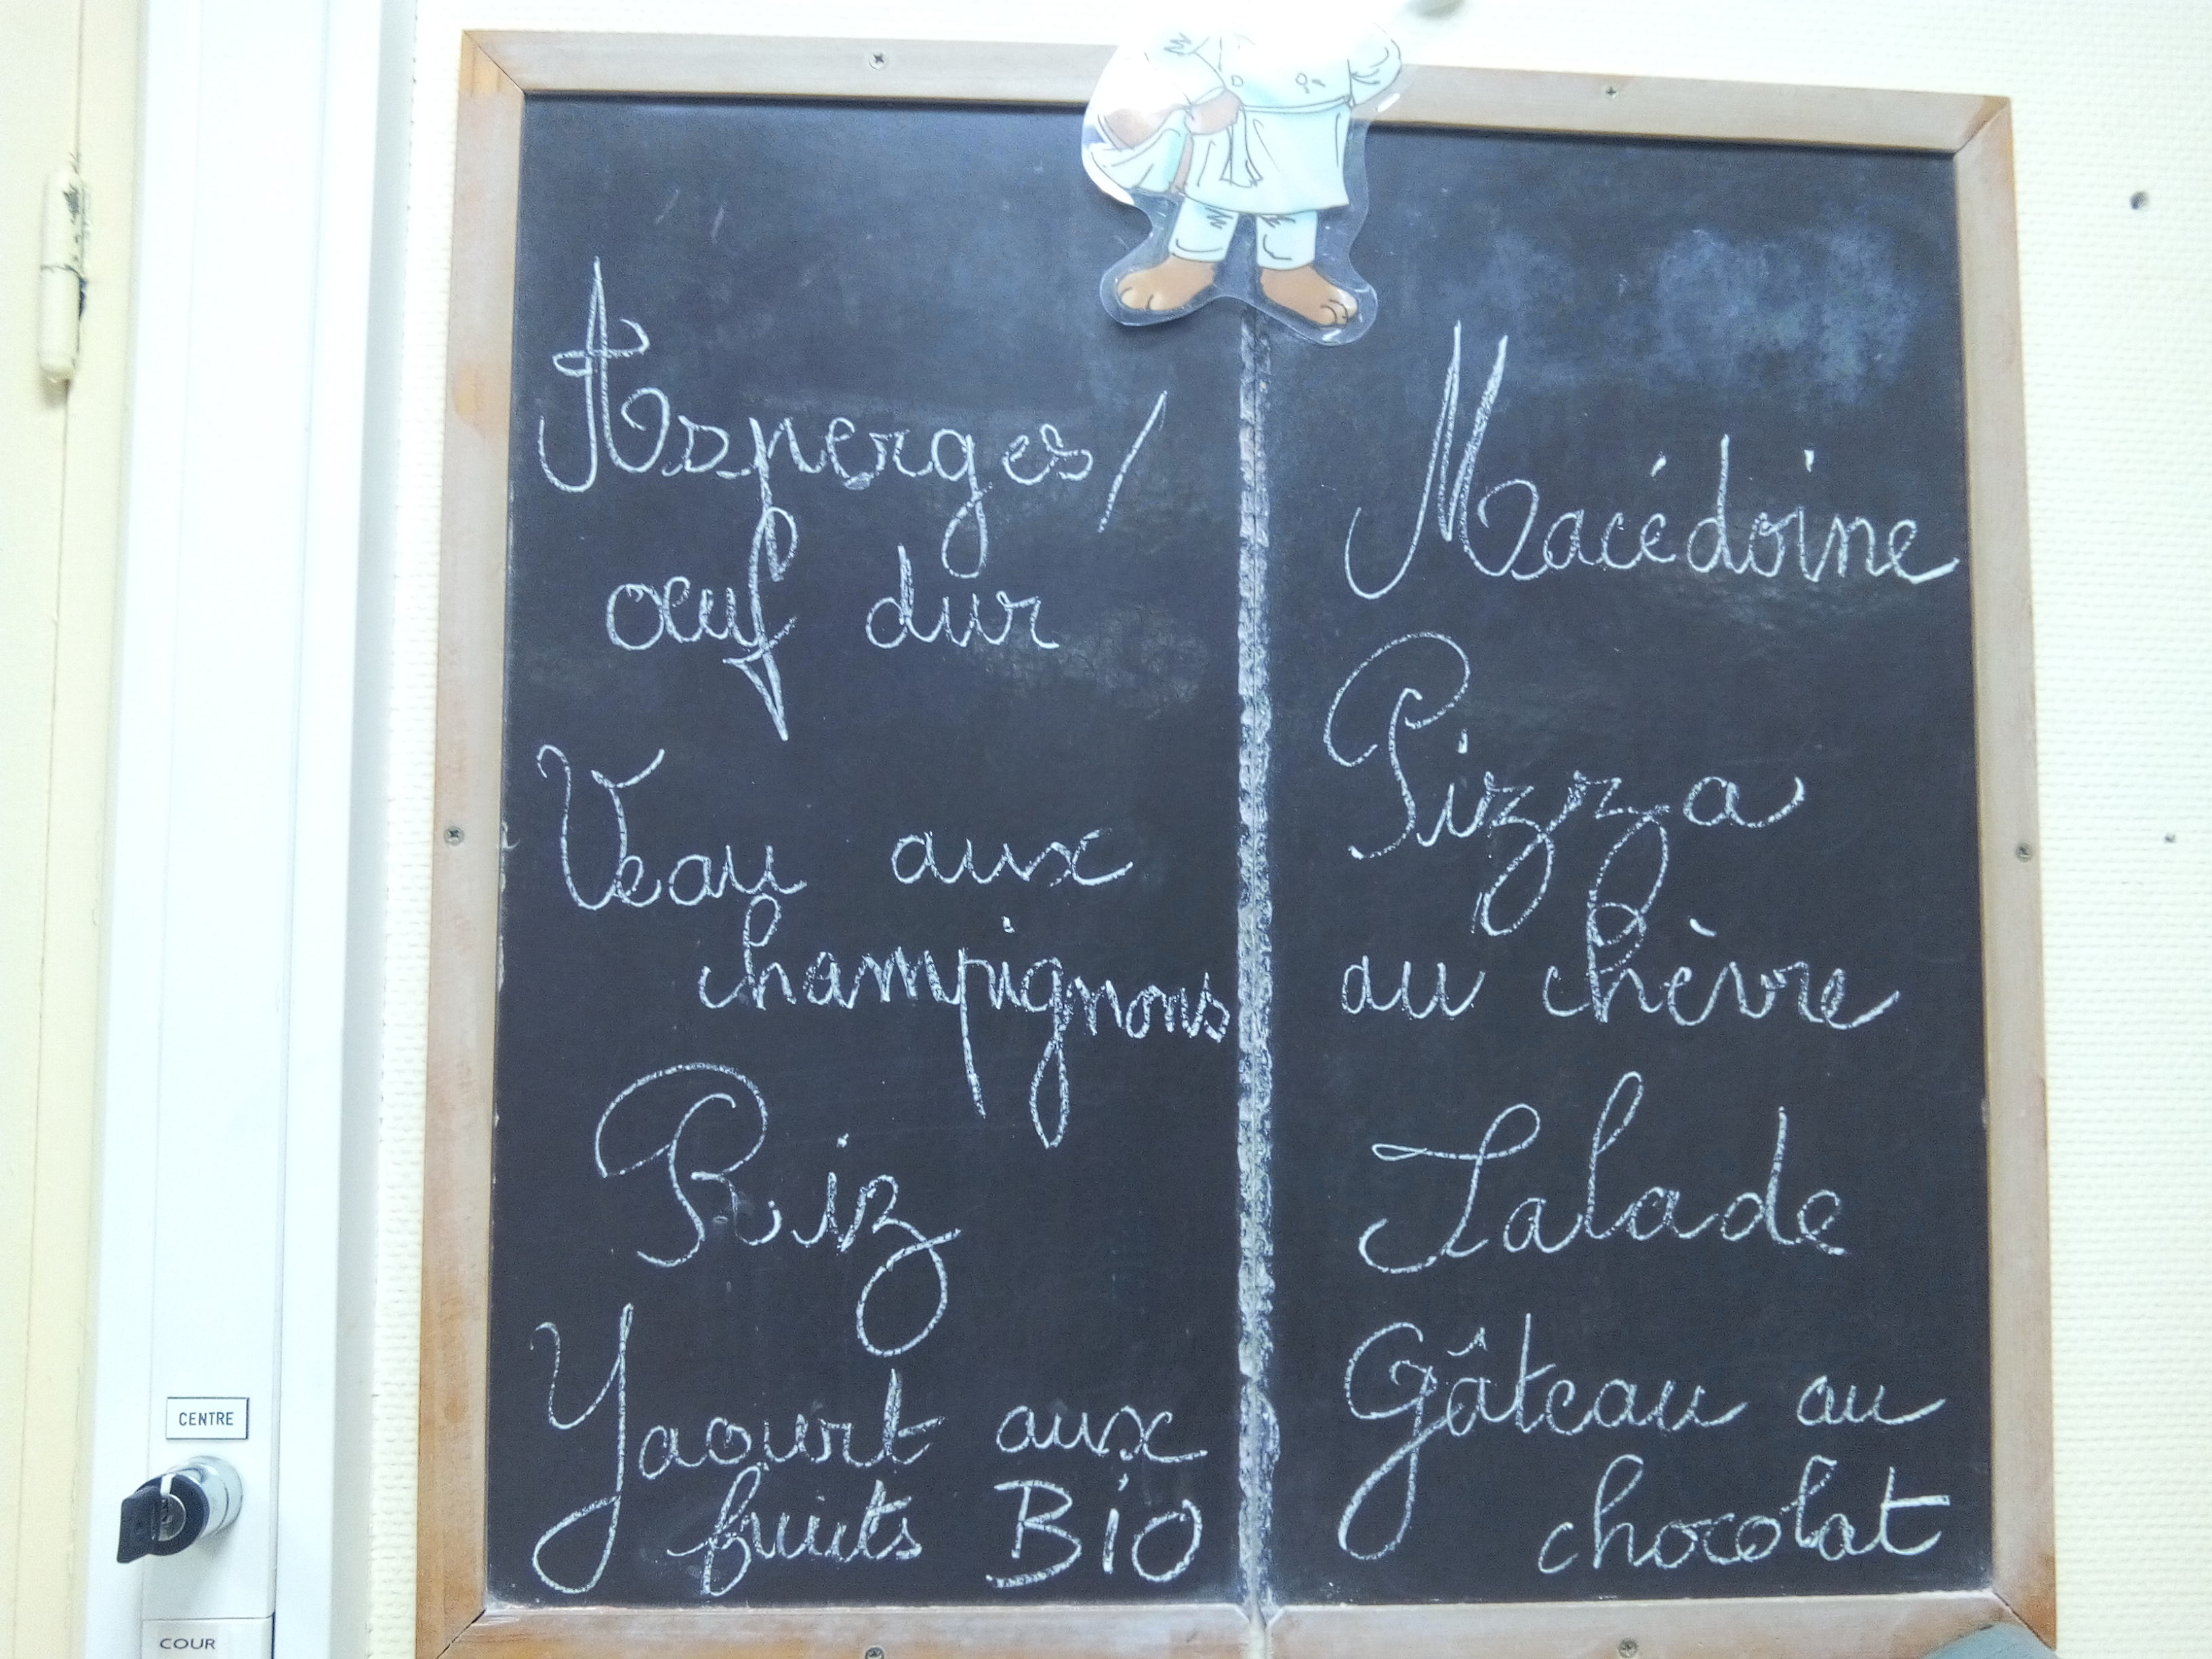 Asperges/
oeuf dur
Veau aux
champignons
Riz
Yaourt aux
fruits BiO
Macédoine
Pizza
au chèvre
Salade
Gâteau au
chocolat
CENTRE
COUR